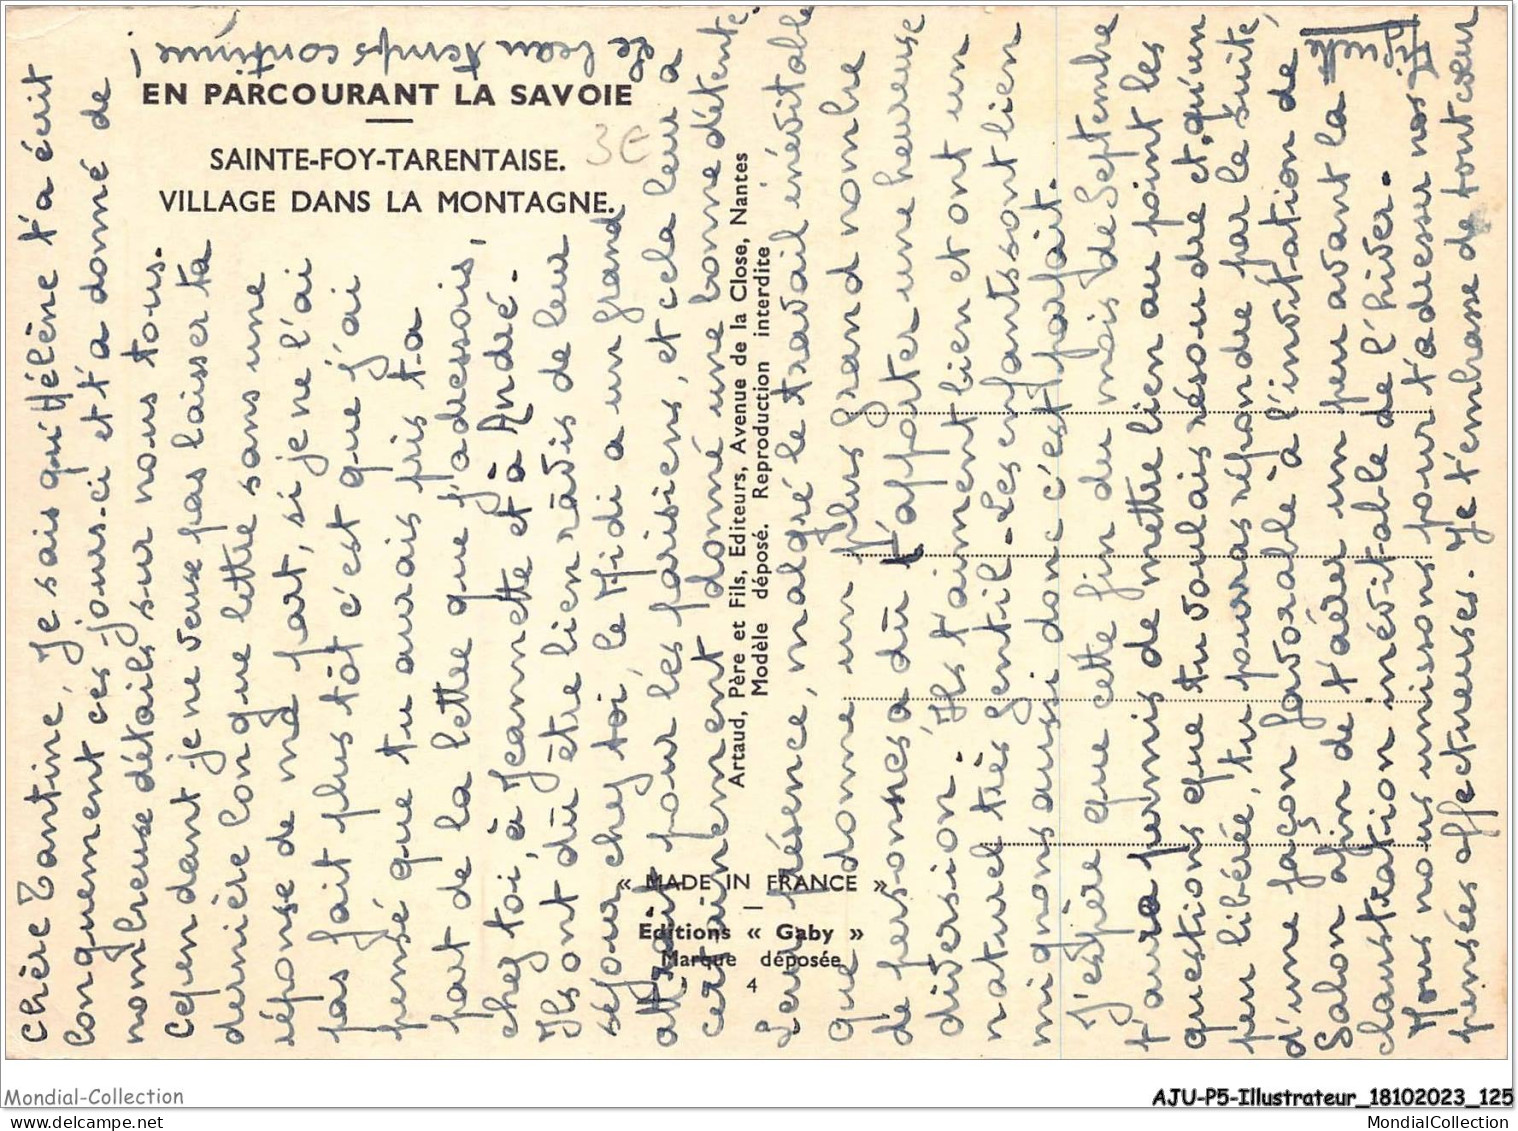 le beau temps continue !
EN PARCOURANT LA SAVOIE
SAINTE-FOY-TARENTAISE.
VILLAGE DANS LA MONTAGNE.
3€
Artaud, Père et Fils, Editeurs, Avenue de la Close, Nantes
Modèle déposé. Reproduction interdite
« MADE IN FRANCE »
Editions « Gaby »
Marque déposée
4
Chère Tantine, Je sais qu'Hélène t'a écrit
longuement ces jours-ci et t'a donné de
nombreuse détails sur nous tous.
Cependant je ne veux pas laisser ta
dernière longue lettre sans une
réponse de ma part, si je ne l'ai
pas fait plus tôt c'est que j'ai
pensé que tu aurais pris ta
part de la lettre que j'adressais,
chez toi, à Jeannette et à André.
Ils ont dû être bien ravis de leur
séjour chez toi, le Midi a un grand
attrait pour les parisiens, et cela leur a
certainement donné une bonne détente.
Leur présence, malgré le travail inévitable
que donne un plus grand nombre
de personnes a dû t'apporter une heureuse
diversion. Ils t'aiment bien et ont un
naturel très gentil - Les enfants sont bien
mignons aussi donc c'est parfait.
J'espère que cette fin du mois de Septembre
t'aura permis de mettre bien au point les
questions que tu voulais résoudre et, qu'un
peu libérée, tu pourras répondre par la suite,
d'une façon favorable à l'invitation de
Salon afin de t'aérer un peu avant la
claustration inévitable de l'hiver.
Nous nous unissons pour t'adresser nos
pensées affectueuses. Je t'embrasse de tout cœur
Mondial-Collection
AJU-P5-Illustrateur_18102023_125
MondialCollection